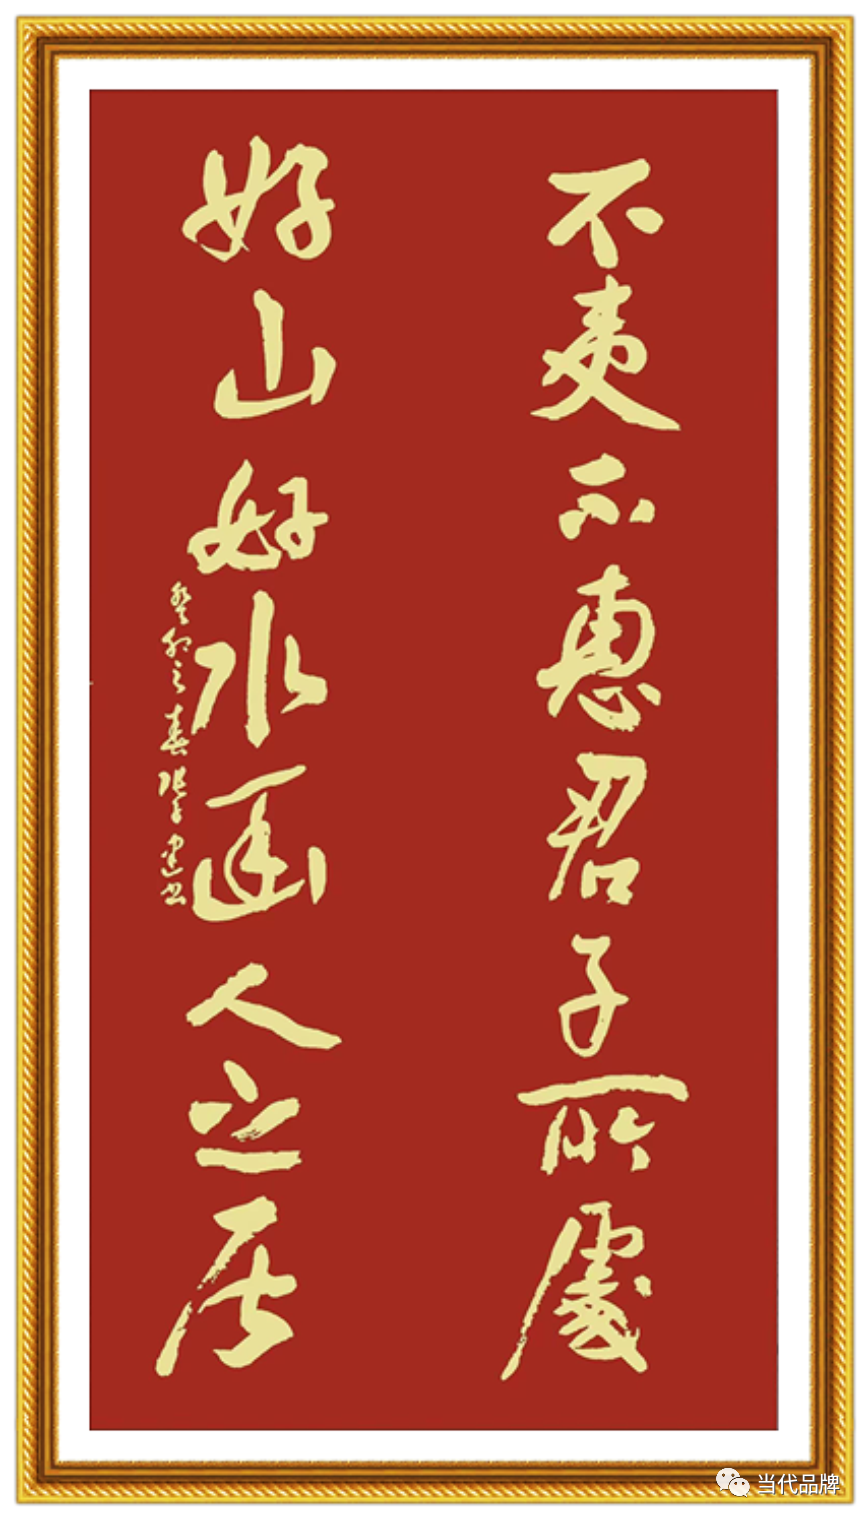 不夷不惠君子所處
好山好水画人之居
癸卯之春张书
当代品牌